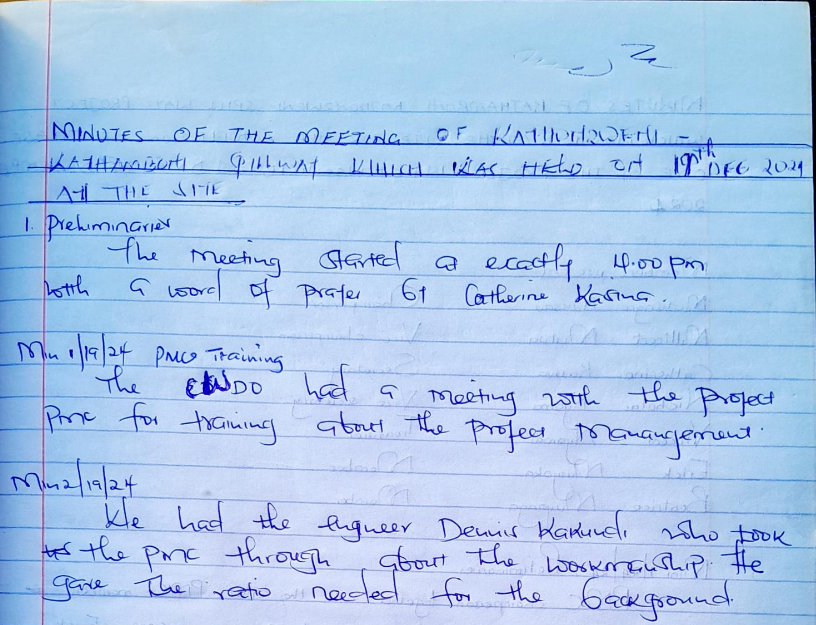 MINUTES OF THE MEETING OF
WHICH WAS HELD ON 19th DEC 2024
AT THE SITE
1. Preliminaries
The meeting started at exactly 4.00 pm
with a word of prayer by Catherine Kasina.
Min 1/19/24 PMC Training
The had a meeting with the project
PMC for training about the project management.
Min 2/19/24
We had the engineer Dennis who took
the PMC through about the workmanship. He
gave the ratio needed for the background.